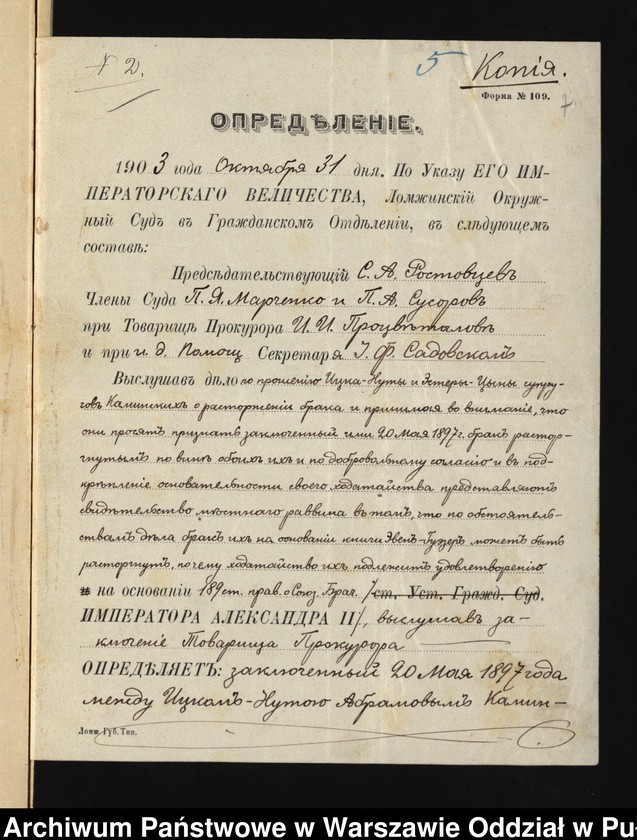 № 2.
5
Копія.
Форма № 109.
7
ОПРЕДѢЛЕНІЕ.
1903 года Октября 31 дня. По Указу ЕГО ИМ-
ПЕРАТОРСКАГО ВЕЛИЧЕСТВА, Ломжинскій Окруж-
ный Судъ въ Гражданскомъ Отдѣленіи, въ слѣдующемъ
составѣ:
Предсѣдательствующій С. А. Ростовцевъ
Члены Суда П. Я. Марченко и П. А. Сусоровъ
при Товарищѣ Прокурора И. И. Процвѣталовѣ
и при и. д. Помощ. Секретаря І. Ф. Садовскомъ
Выслушавъ дѣло по прошенію Ицка-Нуты и Эстеры-Цыны супру-
говъ Каминскихъ о расторженіи брака и принимая во вниманіе, что
они просятъ признать заключенный ими 20 Мая 1897 г. бракъ растор-
гнутымъ по винѣ обоихъ ихъ и по добровольному согласію и въ под-
крѣпленіе основательности своего ходатайства представляютъ
свидѣтельство мѣстнаго раввина въ томъ, что по обстоятель-
ствамъ дѣла бракъ ихъ на основаніи книги Эвенъ-Гуэзеръ можетъ быть
расторгнутъ, почему ходатайство ихъ подлежитъ удовлетворенію
и на основаніи 189 ст. прав. о Союз. Брач. ст. Уст. Гражд. Суд.
ИМПЕРАТОРА АЛЕКСАНДРА II, выслушавъ за-
ключеніе Товарища Прокурора
ОПРЕДѢЛЯЕТЪ: заключенный 20 Мая 1897 года
между Ицкомъ-Нутою Абрамовымъ Камин-
Ломж. Губ. Тип.
Archiwum Państwowe w Warszawie Oddział w Pu